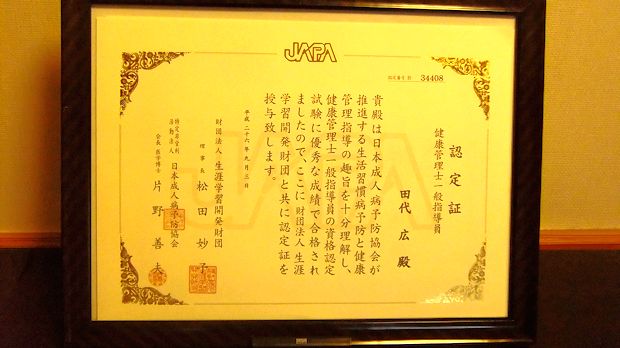 JAPA
認定番号 第 34408
認定証
健康管理士一般指導員
田代 広 殿
貴殿は日本成人病予防協会が
推進する生活習慣病予防と健康
管理指導の趣旨を十分理解し、
健康管理士一般指導員の資格認定
試験に優秀な成績で合格され
ましたので、ここに財団法人生涯
学習開発財団と共に認定証を
授与致します。
平成二十六年九月三日
財団法人 生涯学習開発財団
理事長 松田妙子
特定非営利
活動法人 日本成人病予防協会
会長 医学博士 片野善夫